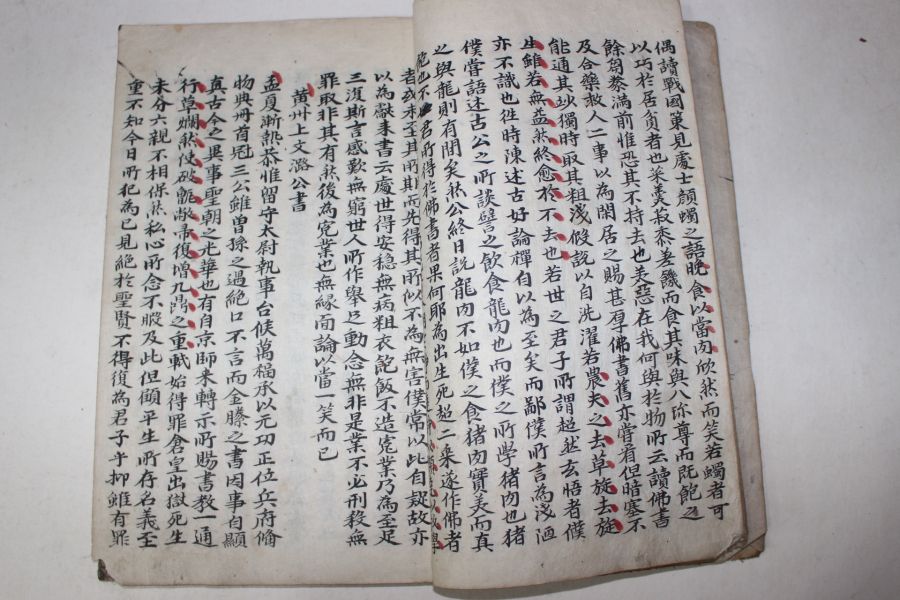 偶讀戰國策見處士顔蠋之語晩食以當肉欣然而笑若蠋者可
以巧於居貧者也菜羹菽黍差饑而食其味與八珎尊而旣飽之
餘芻豢滿前惟恐其不持去也美惡在我何與於物所云讀佛書
及合藥救人二事以為閑居之賜甚厚佛書舊亦甞看但暗塞不
能通其妙獨時取其粗淺假說以自洗濯若農夫之去草旋去旋
生雖若無益然終愈於不去也若世之君子所謂超然玄悟者僕
亦不識也徃時陳述古好論禪自以為至矣而鄙僕所言為淺洒
僕嘗語述古公之所談譬之飮食龍肉也而僕之所學猪肉也猪
之與龍則有間矣然公終日說龍肉不如僕之食猪肉實美而真
飽也不 君所得於佛書者果何耶為出生死超二乘遂作佛者
者或未至其所期而先得其所似不為無害僕常以此自疑故亦
以為獻来書云處世得安穩無病粗衣飽飯不造寃業乃為至足
三復斯言感歎無窮世人所作擧足動念無非是業不必刑殺無
罪取非其有然後為寃業也無緣面論以當一笑而已
黃州上文潞公書
孟夏漸熱恭惟留守太尉執事台候萬福承以元功正位兵府俻
物典冊首冠三公雖曾孫之遇絕口不言而金縢之書因事自顯
真古今之異事聖朝之光華也有自京師来轉示所賜書教一通
行草爛然使破甑敝帚復增九鼎之重軾始得罪倉皇出獄死生
未分六親不相保然私心所念不暇及此但顧平生所存名義至
重不知今日所犯為已見絕於聖賢不得復為君子乎抑雖有罪